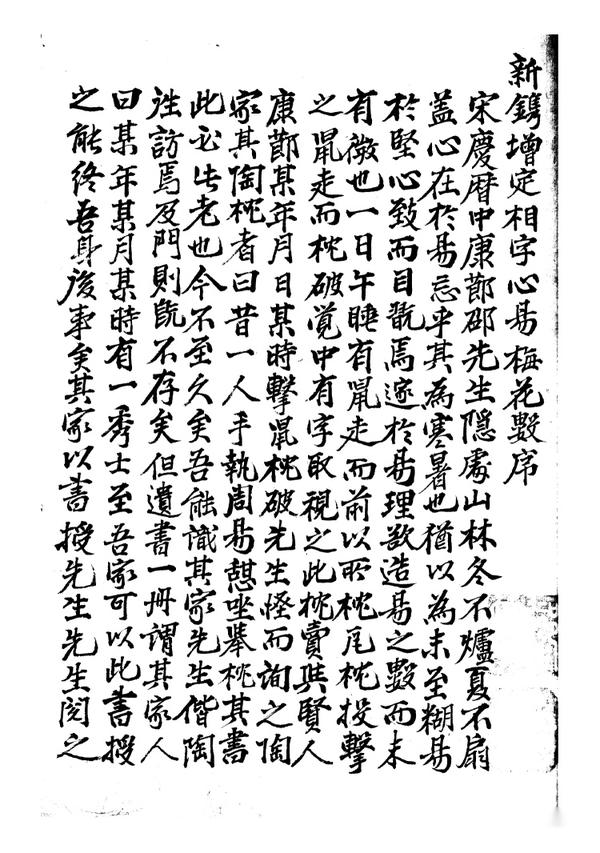 新鐫增定相字心易梅花數序
宋慶曆中康節邵先生隱處山林冬不爐夏不扇
盖心在於易忘乎其為寒暑也猶以為未至糊易
於堅心致而目翫焉邃於易理欲造易之數而未
有徵也一日午睡有鼠走而前以所枕瓦枕投擊
之鼠走而枕破覺中有字取視之此枕賣與賢人
康節某年月日某時擊鼠枕破先生怪而詢之陶
家其陶枕者曰昔一人手執周易憩坐舉枕其書
此必此老也今不至久矣吾能識其家先生偕陶
徃訪焉及門則旣不存矣但遺書一冊謂其家人
曰某年某月某時有一秀士至吾家可以此書授
之能終吾身後事矣其家以書授先生先生閱之